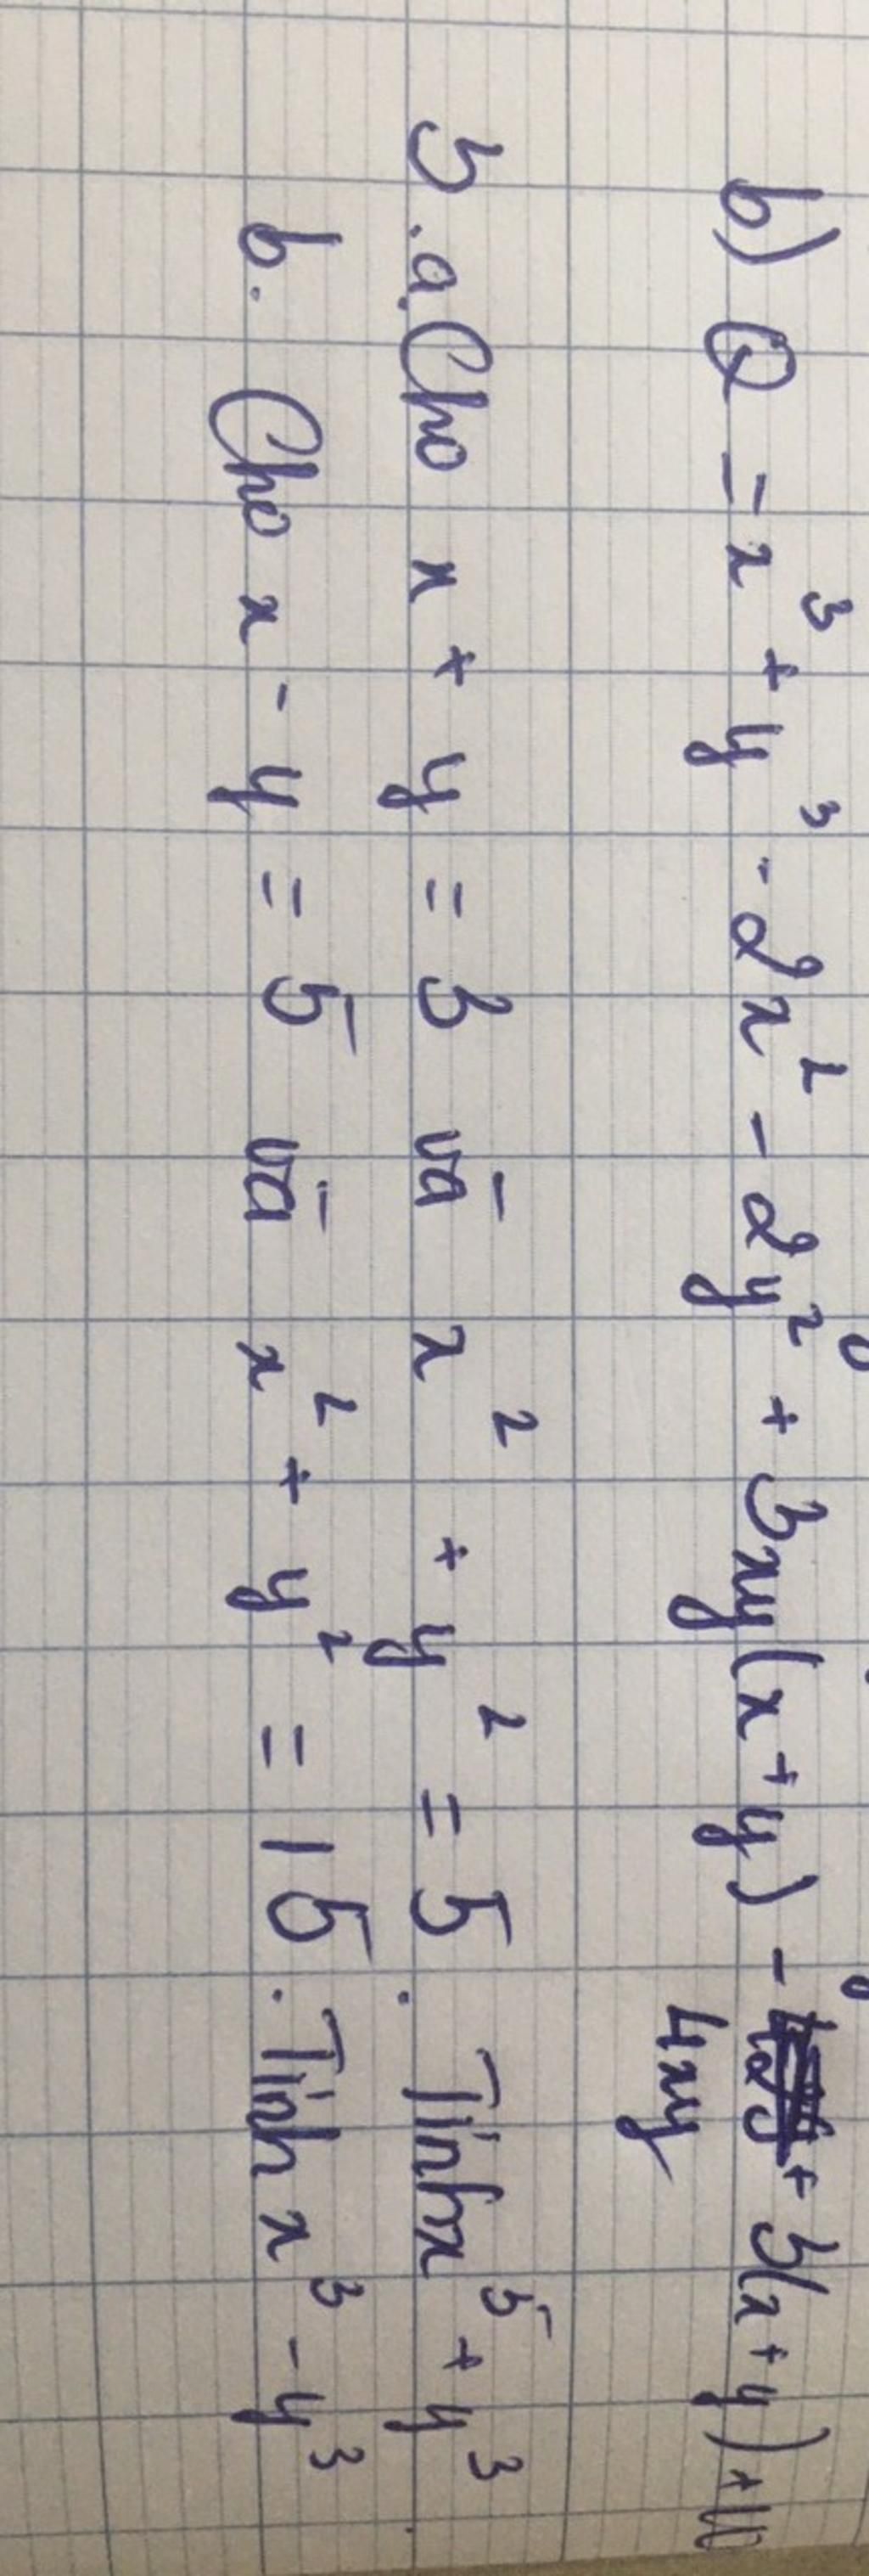 b) Q = x³ + y³ - 2x² - 2y² + 3xy(x + y) - 4xy + 3(x + y) + 10
3. a. Cho x + y = 3 và x² + y² = 5. Tính x⁵ + y³.
b. Cho x - y = 5 và x² + y² = 15. Tính x³ - y³